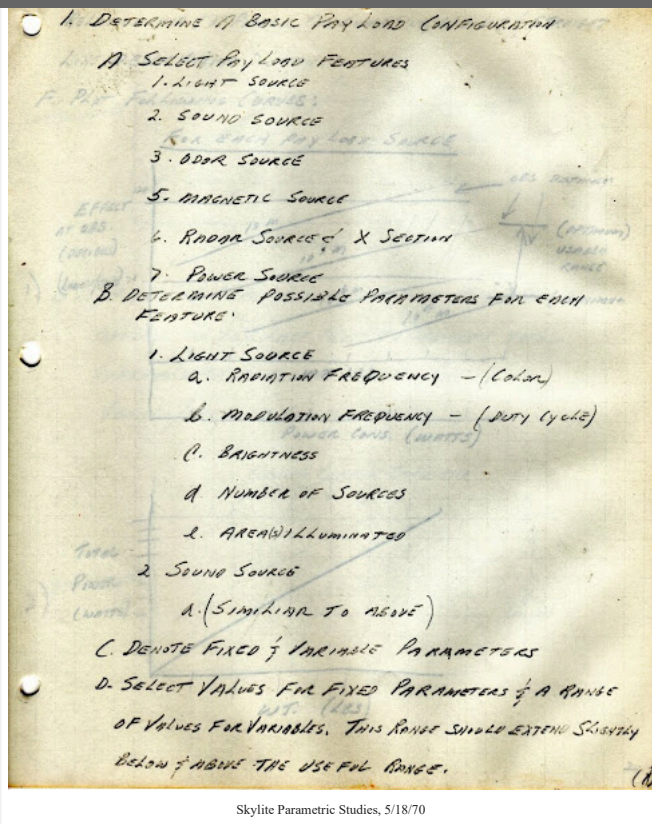 1. DETERMINE A BASIC PAYLOAD CONFIGURATION
A SELECT PAYLOAD FEATURES
1. LIGHT SOURCE
2. SOUND SOURCE
3. ODOR SOURCE
5. MAGNETIC SOURCE
6. RADAR SOURCE & X SECTION
7. POWER SOURCE
B. DETERMINE POSSIBLE PARAMETERS FOR EACH
FEATURE.
1. LIGHT SOURCE
a. RADIATION FREQUENCY - (COLOR)
b. MODULATION FREQUENCY - (DUTY CYCLE)
C. BRIGHTNESS
d NUMBER OF SOURCES
e. AREA(S) ILLUMINATED
2 SOUND SOURCE
a. (SIMILIAR TO ABOVE)
C. DENOTE FIXED & VARIABLE PARAMETERS
D. SELECT VALUES FOR FIXED PARAMETERS & A RANGE
OF VALUES FOR VARIABLES. THIS RANGE SHOULD EXTEND SLIGHTLY
BELOW & ABOVE THE USEFUL RANGE.
F. PLOT FOLLOWING CURVES:
FOR EACH PAYLOAD SOURCE
EFFECT
AT OBS.
(OPTIMUM)
USABLE
RANGE
POWER CONS. (WATTS)
TOTAL
POWER
(WATTS)
WT. (LBS)
Skylite Parametric Studies, 5/18/70